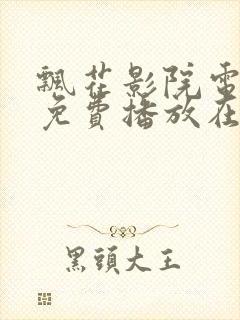 飄花影院電
免費播放在
黑頭大王